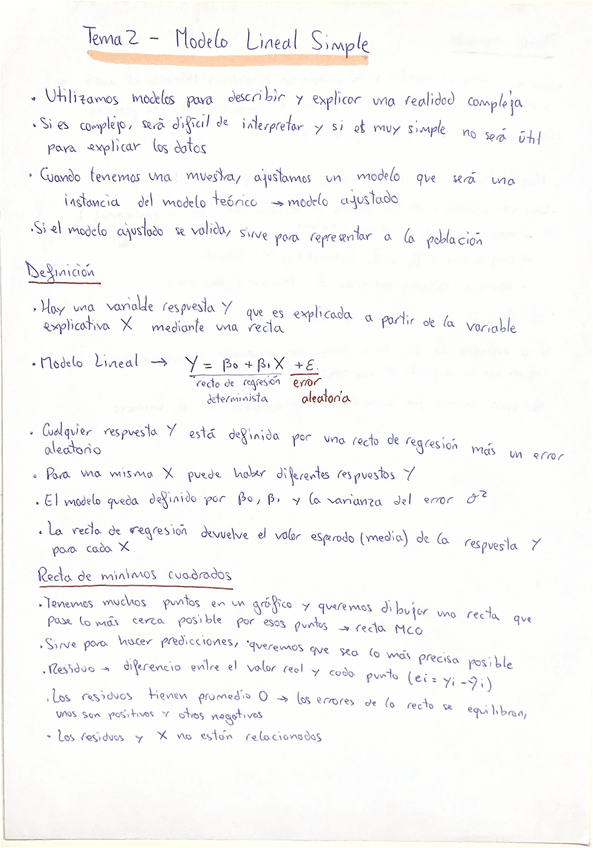 Tema 2 - Modelo Lineal Simple
• Utilizamos modelos para describir y explicar una realidad compleja
• Si es complejo, será difícil de interpretar y si es muy simple no será útil
para explicar los datos
• Cuando tenemos una muestra, ajustamos un modelo que será una
instancia del modelo teórico → modelo ajustado
• Si el modelo ajustado se valida, sirve para representar a la población
Definición
• Hay una variable respuesta Y que es explicada a partir de la variable
explicativa X mediante una recta
• Modelo Lineal → Y = β0 + β1X + ε.
recta de regresión error
determinista aleatoria
• Cualquier respuesta Y está definida por una recta de regresión más un error
aleatorio
• Para una misma X puede haber diferentes respuestas Y
• El modelo queda definido por β0, β1 y la varianza del error σ²
• La recta de regresión devuelve el valor esperado (media) de la respuesta Y
para cada X
Recta de mínimos cuadrados
• Tenemos muchos puntos en un gráfico y queremos dibujar una recta que
pase lo más cerca posible por esos puntos → recta MCO
• Sirve para hacer predicciones, queremos que sea lo más precisa posible
• Residuo → diferencia entre el valor real y cada punto (ei = yi - ŷi)
• Los residuos tienen promedio 0 → los errores de la recta se equilibran,
unos son positivos y otros negativos
• Los residuos y X no están relacionados